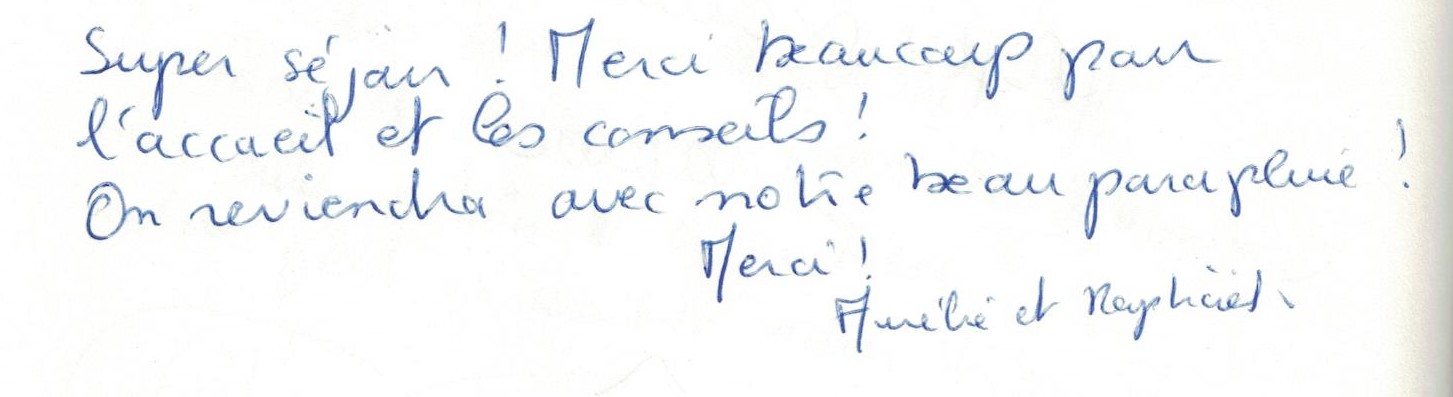 Super séjour ! Merci beaucoup pour
l'accueil et les conseils !
On reviendra avec notre beau parapluie !
Merci !
Aurélie et Raphaël.